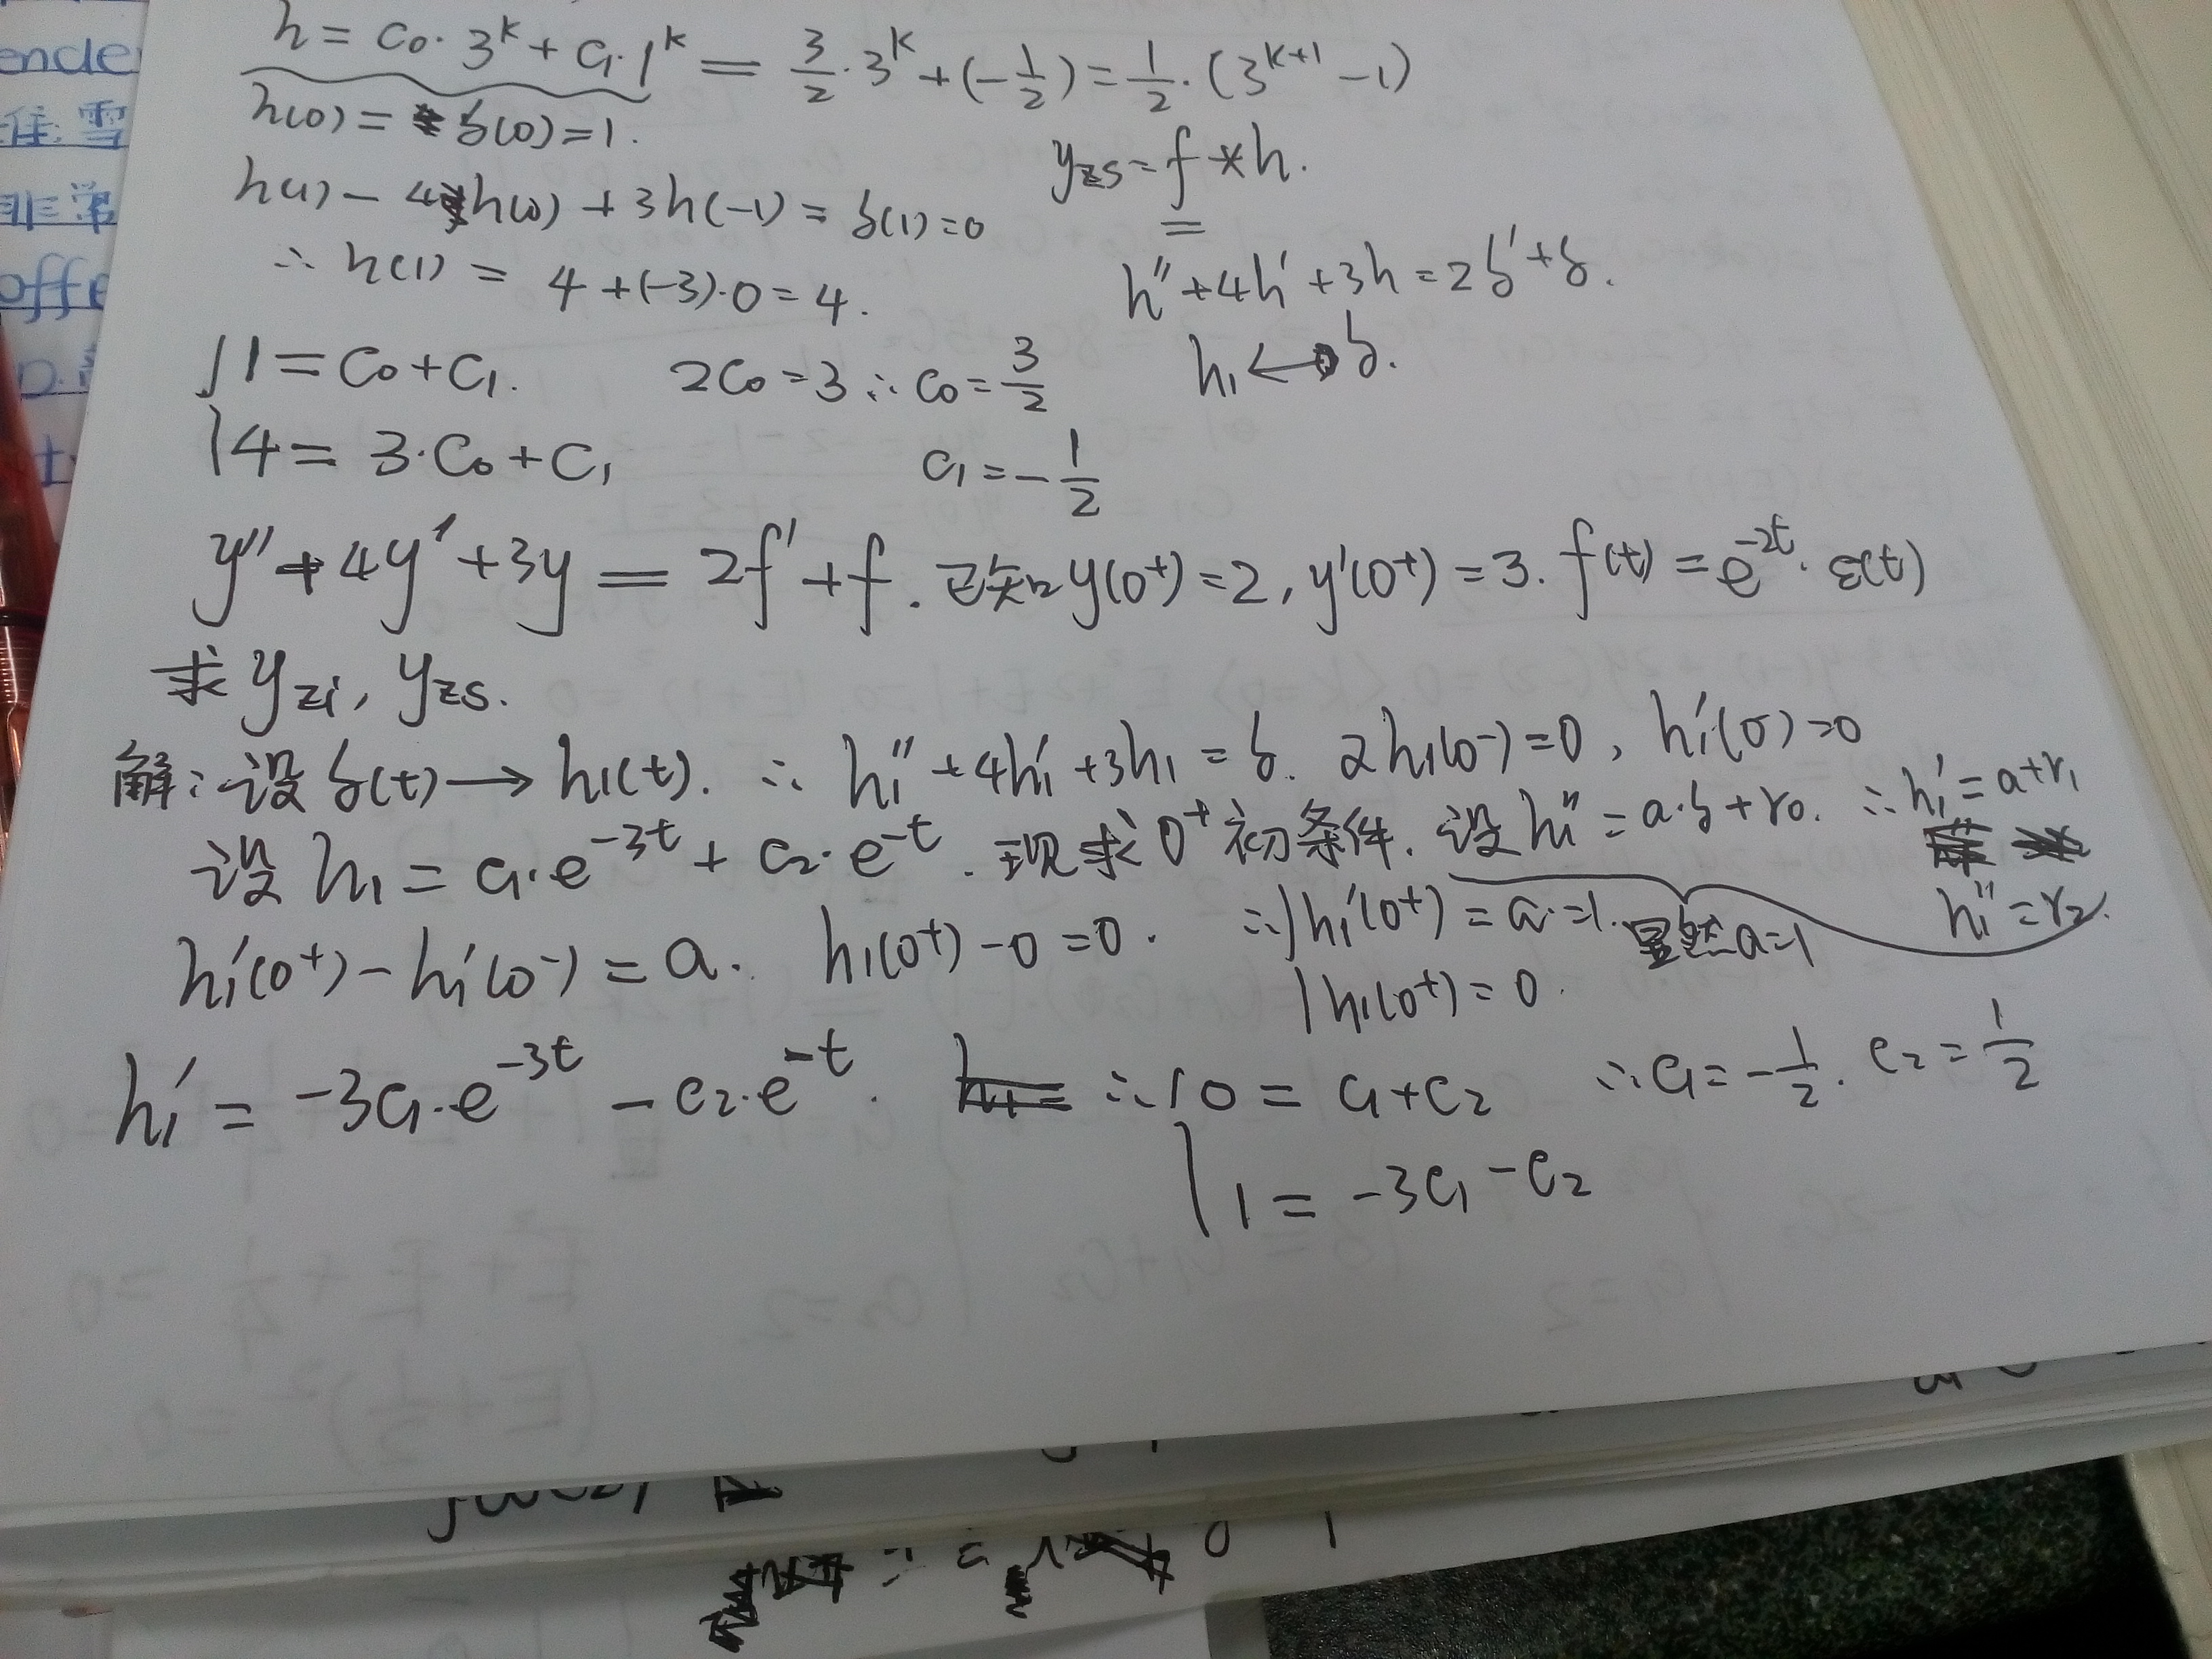 h = c₀·3ᵏ + c₁·1ᵏ = 3/2·3ᵏ + (-1/2) = 1/2·(3ᵏ⁺¹ - 1)
h(0) = δ(0) = 1.
yzs = f * h.
h(1) - 4h(0) + 3h(-1) = δ(1) = 0
∴ h(1) = 4 + (-3)·0 = 4.
h'' + 4h' + 3h = 2δ' + δ.
h₁ ↔ δ.
{ 1 = c₀ + c₁. 2c₀ = 3 ∴ c₀ = 3/2
4 = 3·c₀ + c₁ c₁ = -1/2
y'' + 4y' + 3y = 2f' + f. 已知 y(0⁺) = 2, y'(0⁺) = 3. f(t) = e⁻²ᵗ·ε(t)
求 yzi, yzs.
解: 设 δ(t) → h₁(t). ∴ h₁'' + 4h₁' + 3h₁ = δ. 2h₁(0⁻) = 0, h₁'(0⁻) = 0
设 h₁ = c₁·e⁻³ᵗ + c₂·e⁻ᵗ. 现求 0⁺ 初条件. 设 h₁'' = a·δ + r₀. ∴ h₁' = a + r₁
h₁'' = r₂.
h₁'(0⁺) - h₁'(0⁻) = a. h₁(0⁺) - 0 = 0. ∴ { h₁'(0⁺) = a = 1. 显然 a = 1
h₁(0⁺) = 0.
h₁' = -3c₁·e⁻³ᵗ - c₂·e⁻ᵗ. ∴ { 0 = c₁ + c₂ ∴ c₁ = -1/2. c₂ = 1/2
1 = -3c₁ - c₂